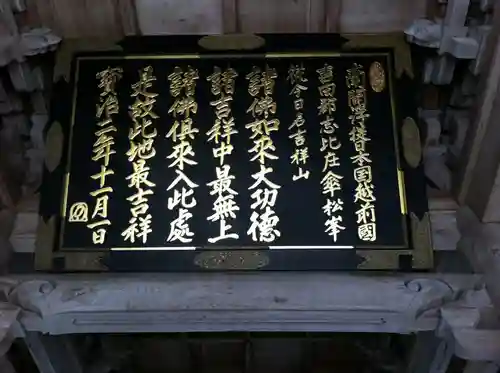 南閻浮提日本国越前国
吉田郡志比庄傘松峯
從今日名吉祥山
諸佛如来大功德
諸吉祥中最無上
諸佛俱来入此處
是故此地最吉祥
寶治二年十一月一日